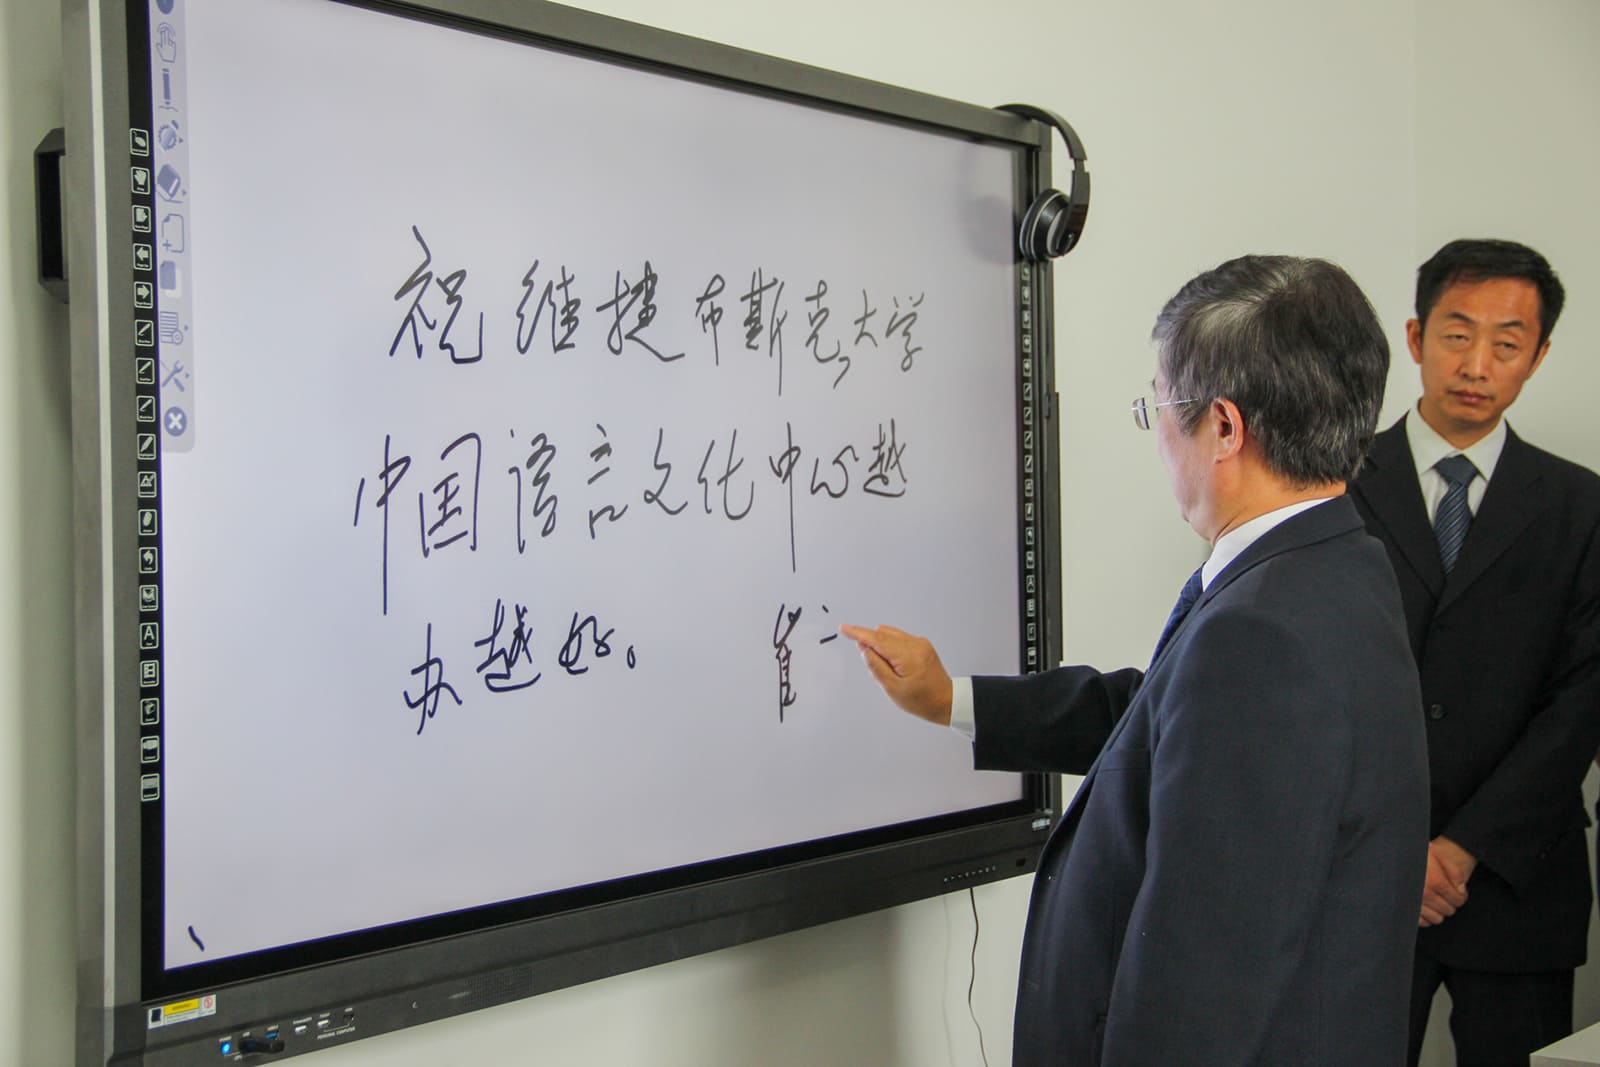 祝维捷布斯克大学
中国语言文化中心越
办越好。 崔